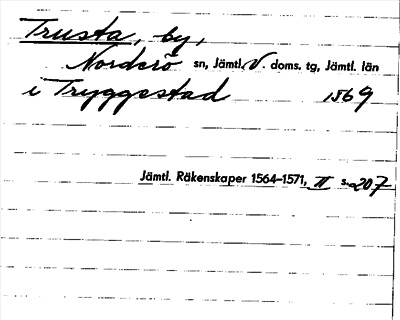 Trusta, by,
Norderö sn, Jämtl. V. doms. tg, Jämtl. län
i Tryggestad 1569
Jämtl. Räkenskaper 1564-1571, II s. 207